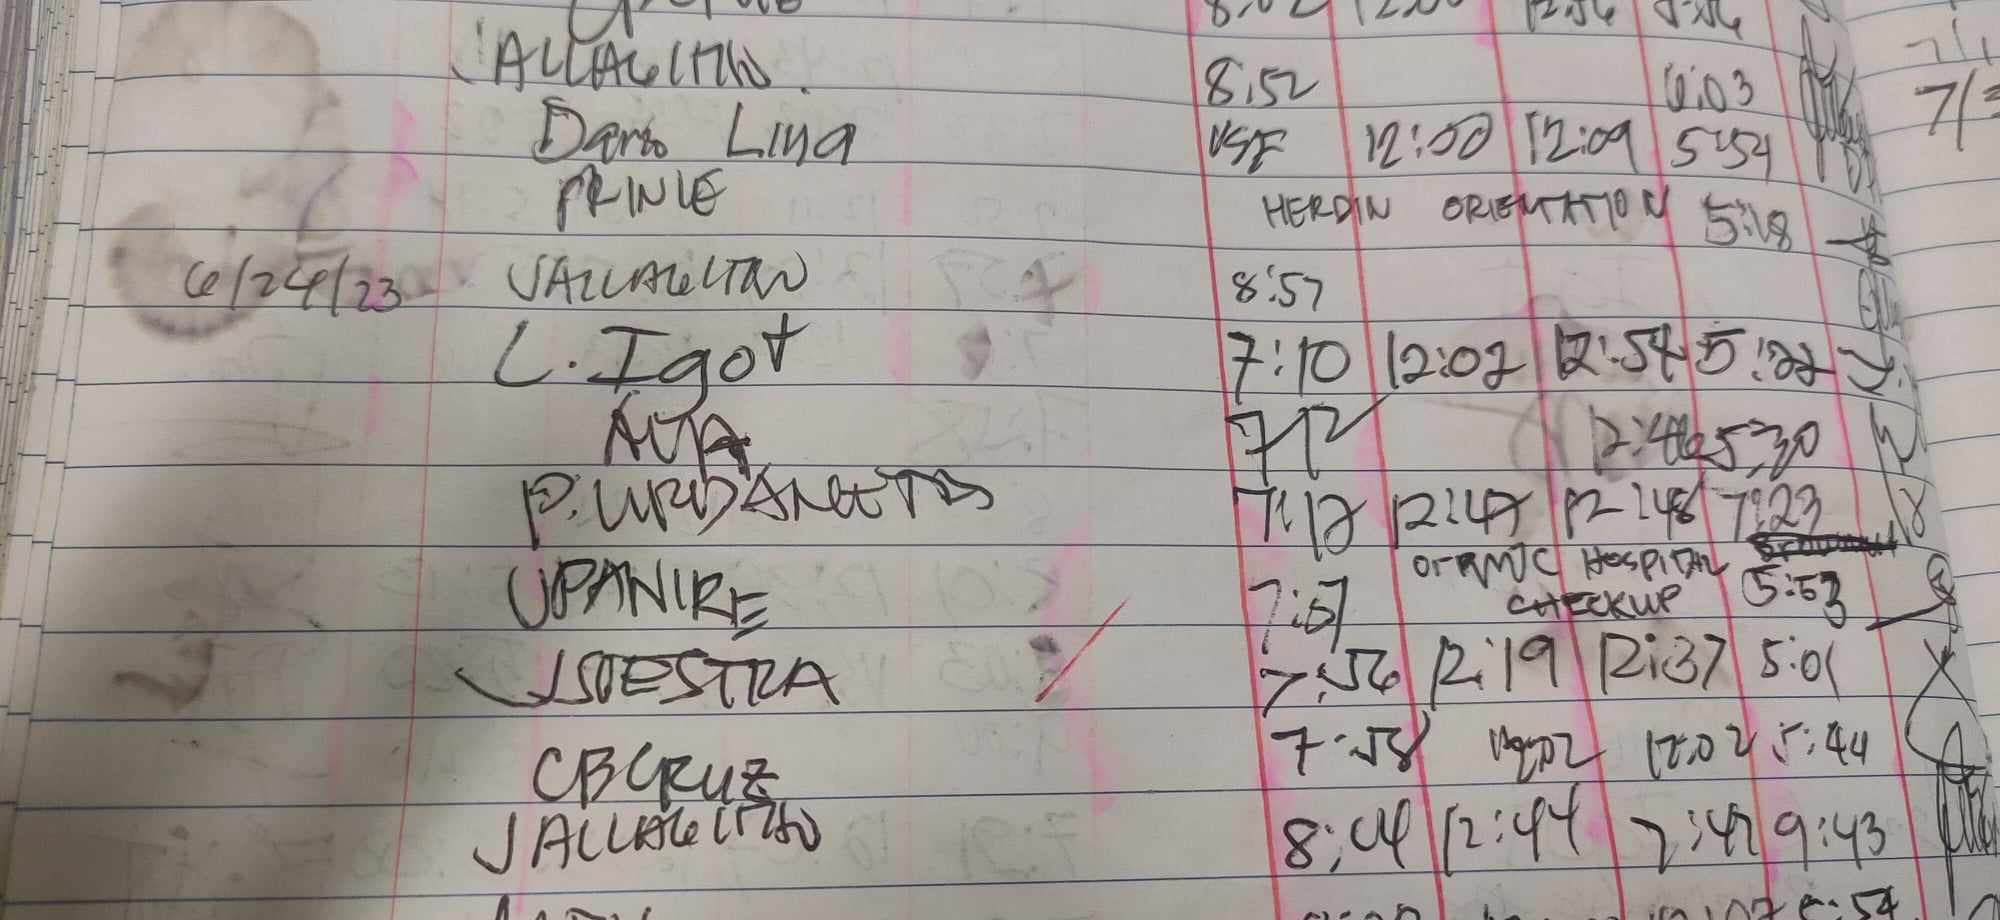 8:02 12:00 12:56 5:56
JALLAGUITAN 8:52 6:03
Dario Lina VSF 12:00 12:09 5:54
PRINCE HERDIN ORIENTATION 5:18
6/24/23 JALLAGUITAN 8:57
L. Igot 7:10 12:02 12:54 5:22
712 12:46 5:30
P. URDANETA 7:12 12:47 12:48 7:23
UPANIRE 7:57 HOSPITAL 5:53
CHECKUP
JSIESTRA 7:56 12:19 12:37 5:01
CBCRUZ 7:58 12:02 12:02 5:44
JALLAGUITAN 8:04 12:44 2:42 9:43
7/1
7/